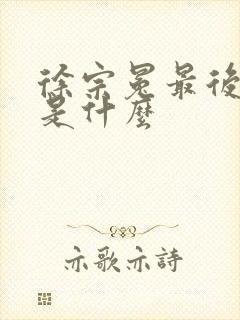 徐宗冕最後
是什麼
亦歌亦詩